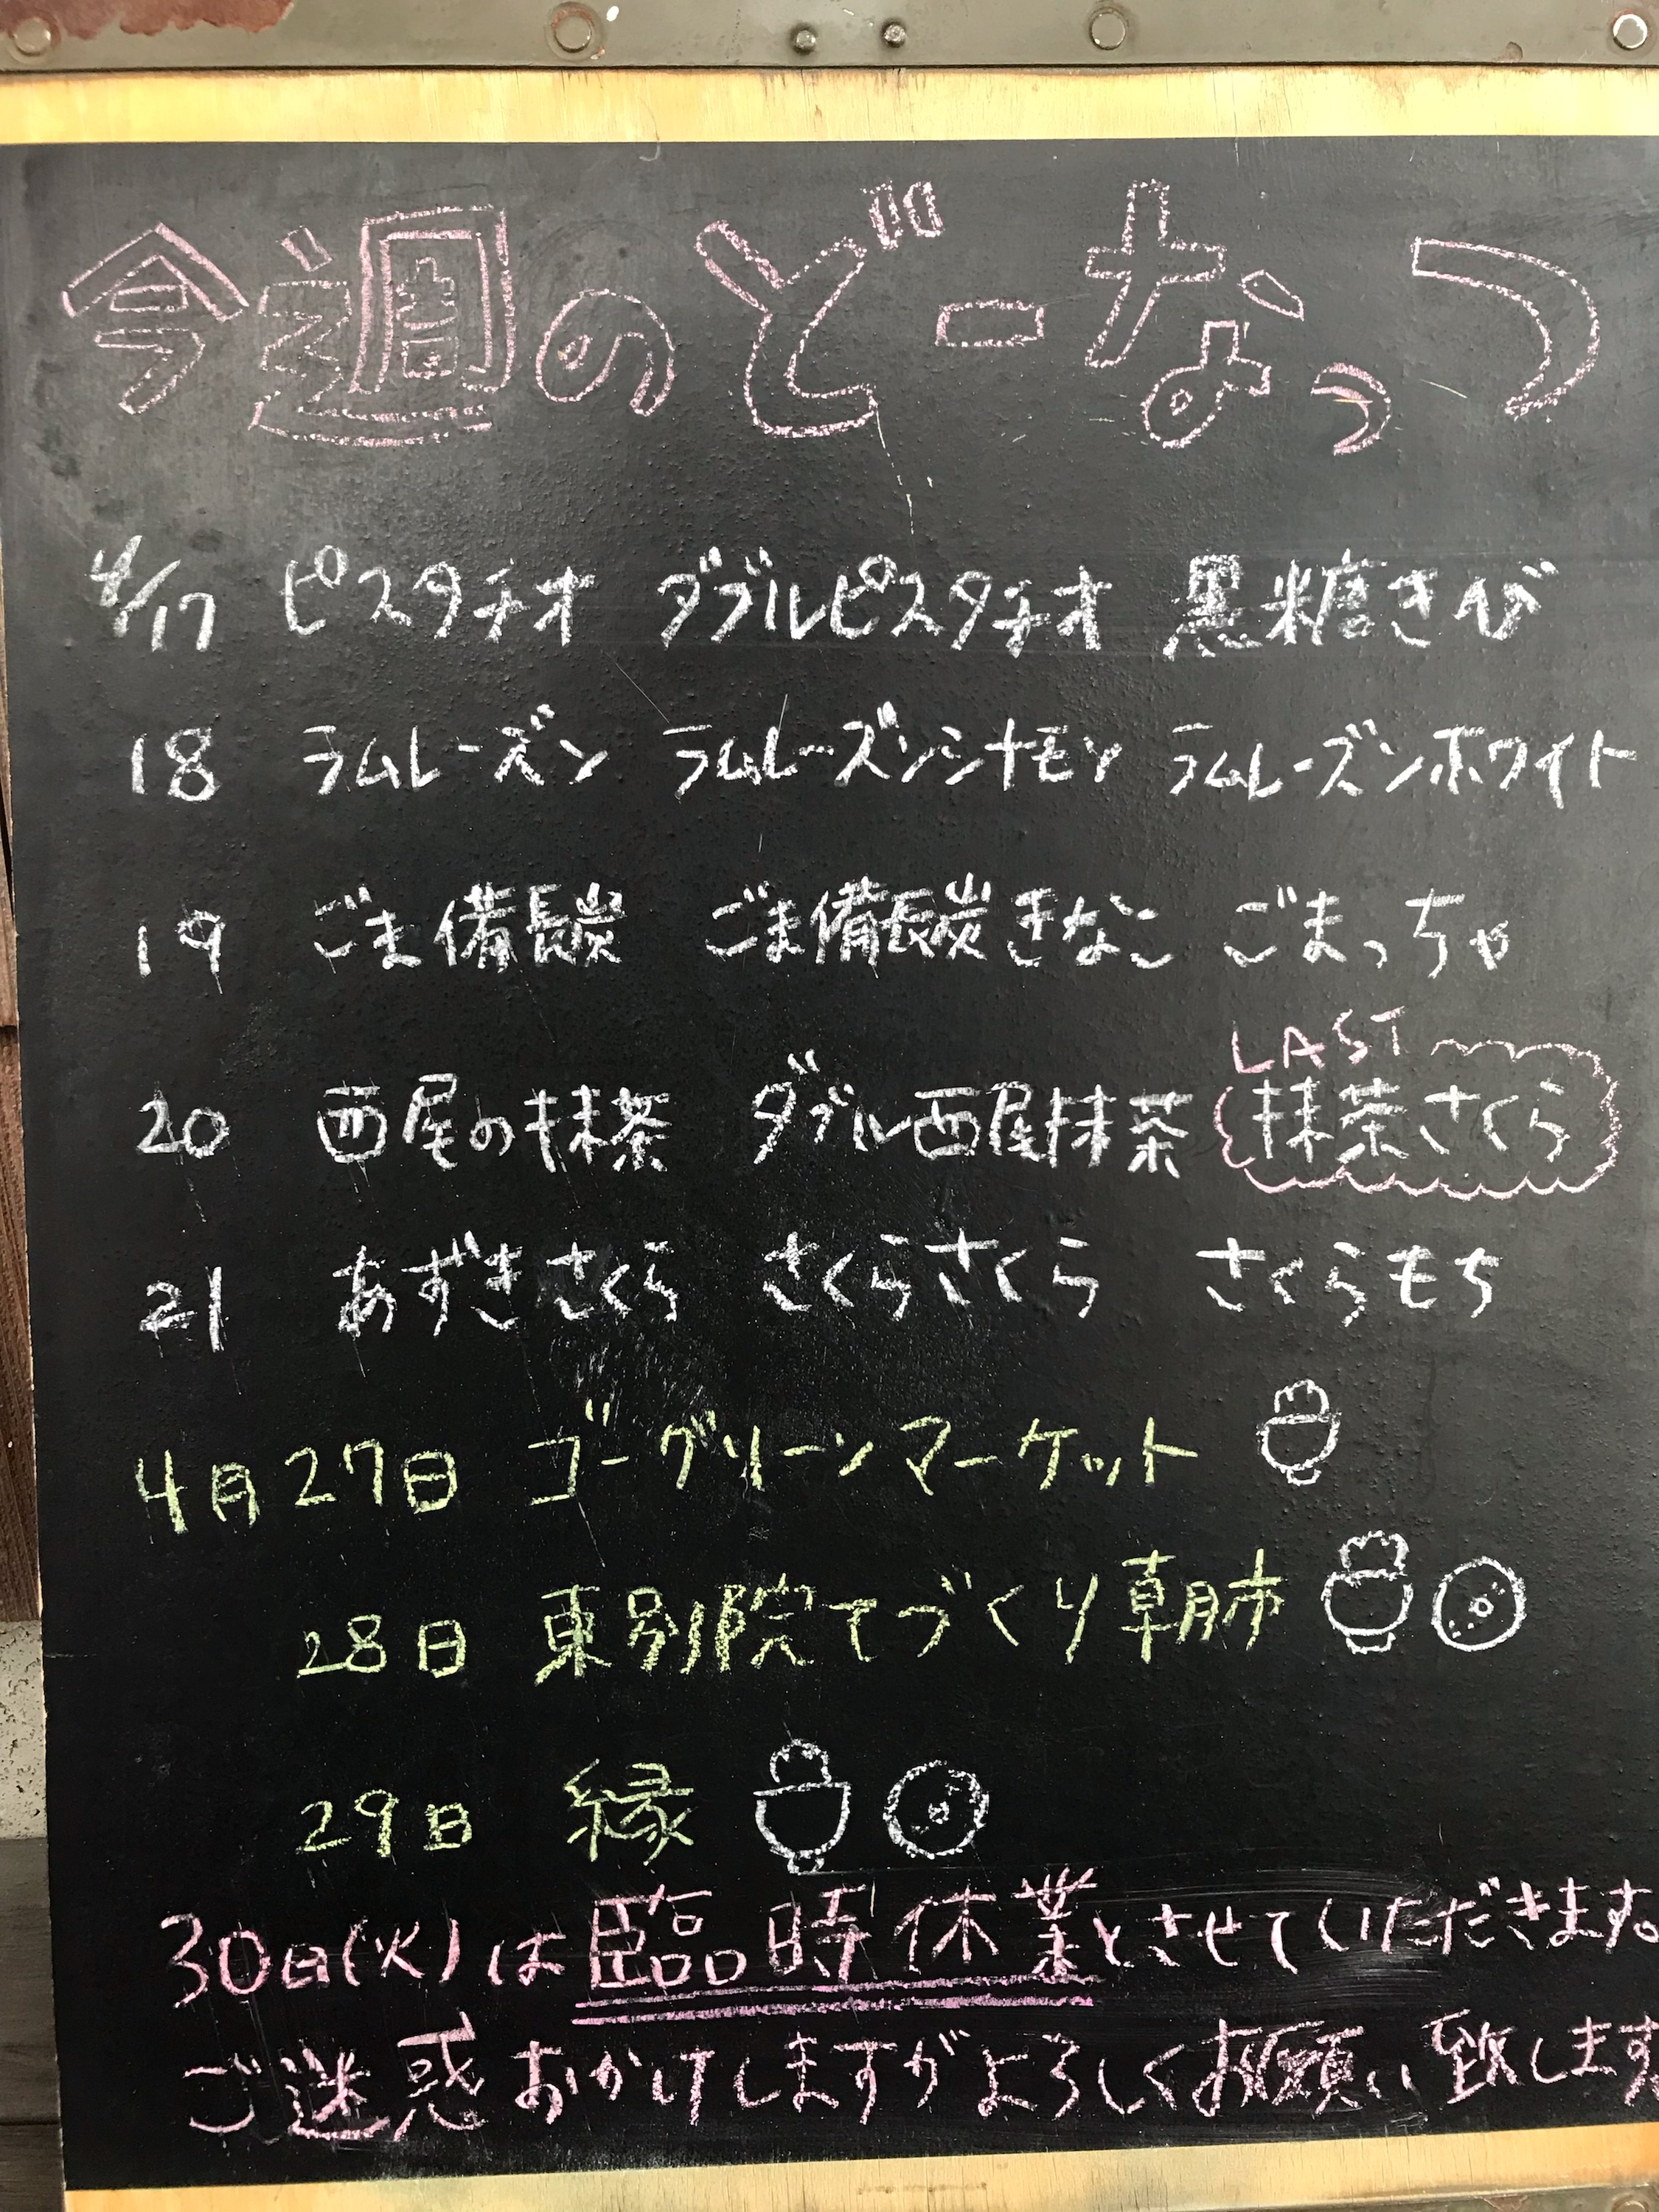 今週のどーなっつ
4/17 ピスタチオ ダブルピスタチオ 黒糖きび
18 ラムレーズン ラムレーズンシナモン ラムレーズンホワイト
19 ごま備長炭 ごま備長炭きなこ ごまっちゃ
LAST
20 西尾の抹茶 ダブル西尾抹茶 抹茶さくら
21 あずきさくら さくらさくら さくらもち
4月27日 ゴーグリーンマーケット
28日 東別院てづくり朝市
29日 縁
30日(火)は臨時休業とさせていただきます。
ご迷惑おかけしますがよろしくお願い致します